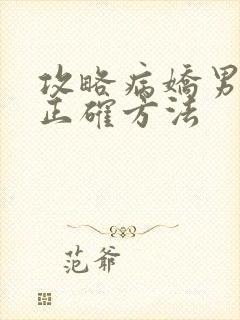 攻略病嬌男
正確方法
范爺